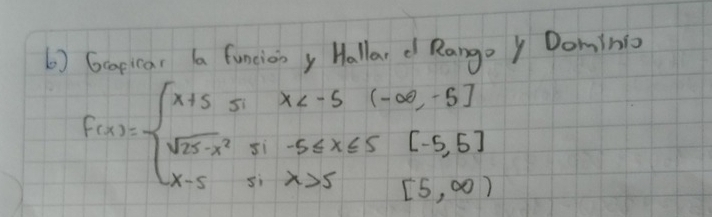 b) Graficar la función y Hallar el Rango y Dominio
x+5 si x<-5 (-∞,-5]
f(x)= √25-x² si -5≤x≤5 [-5,5]
x-5 si x>5 [5,∞)